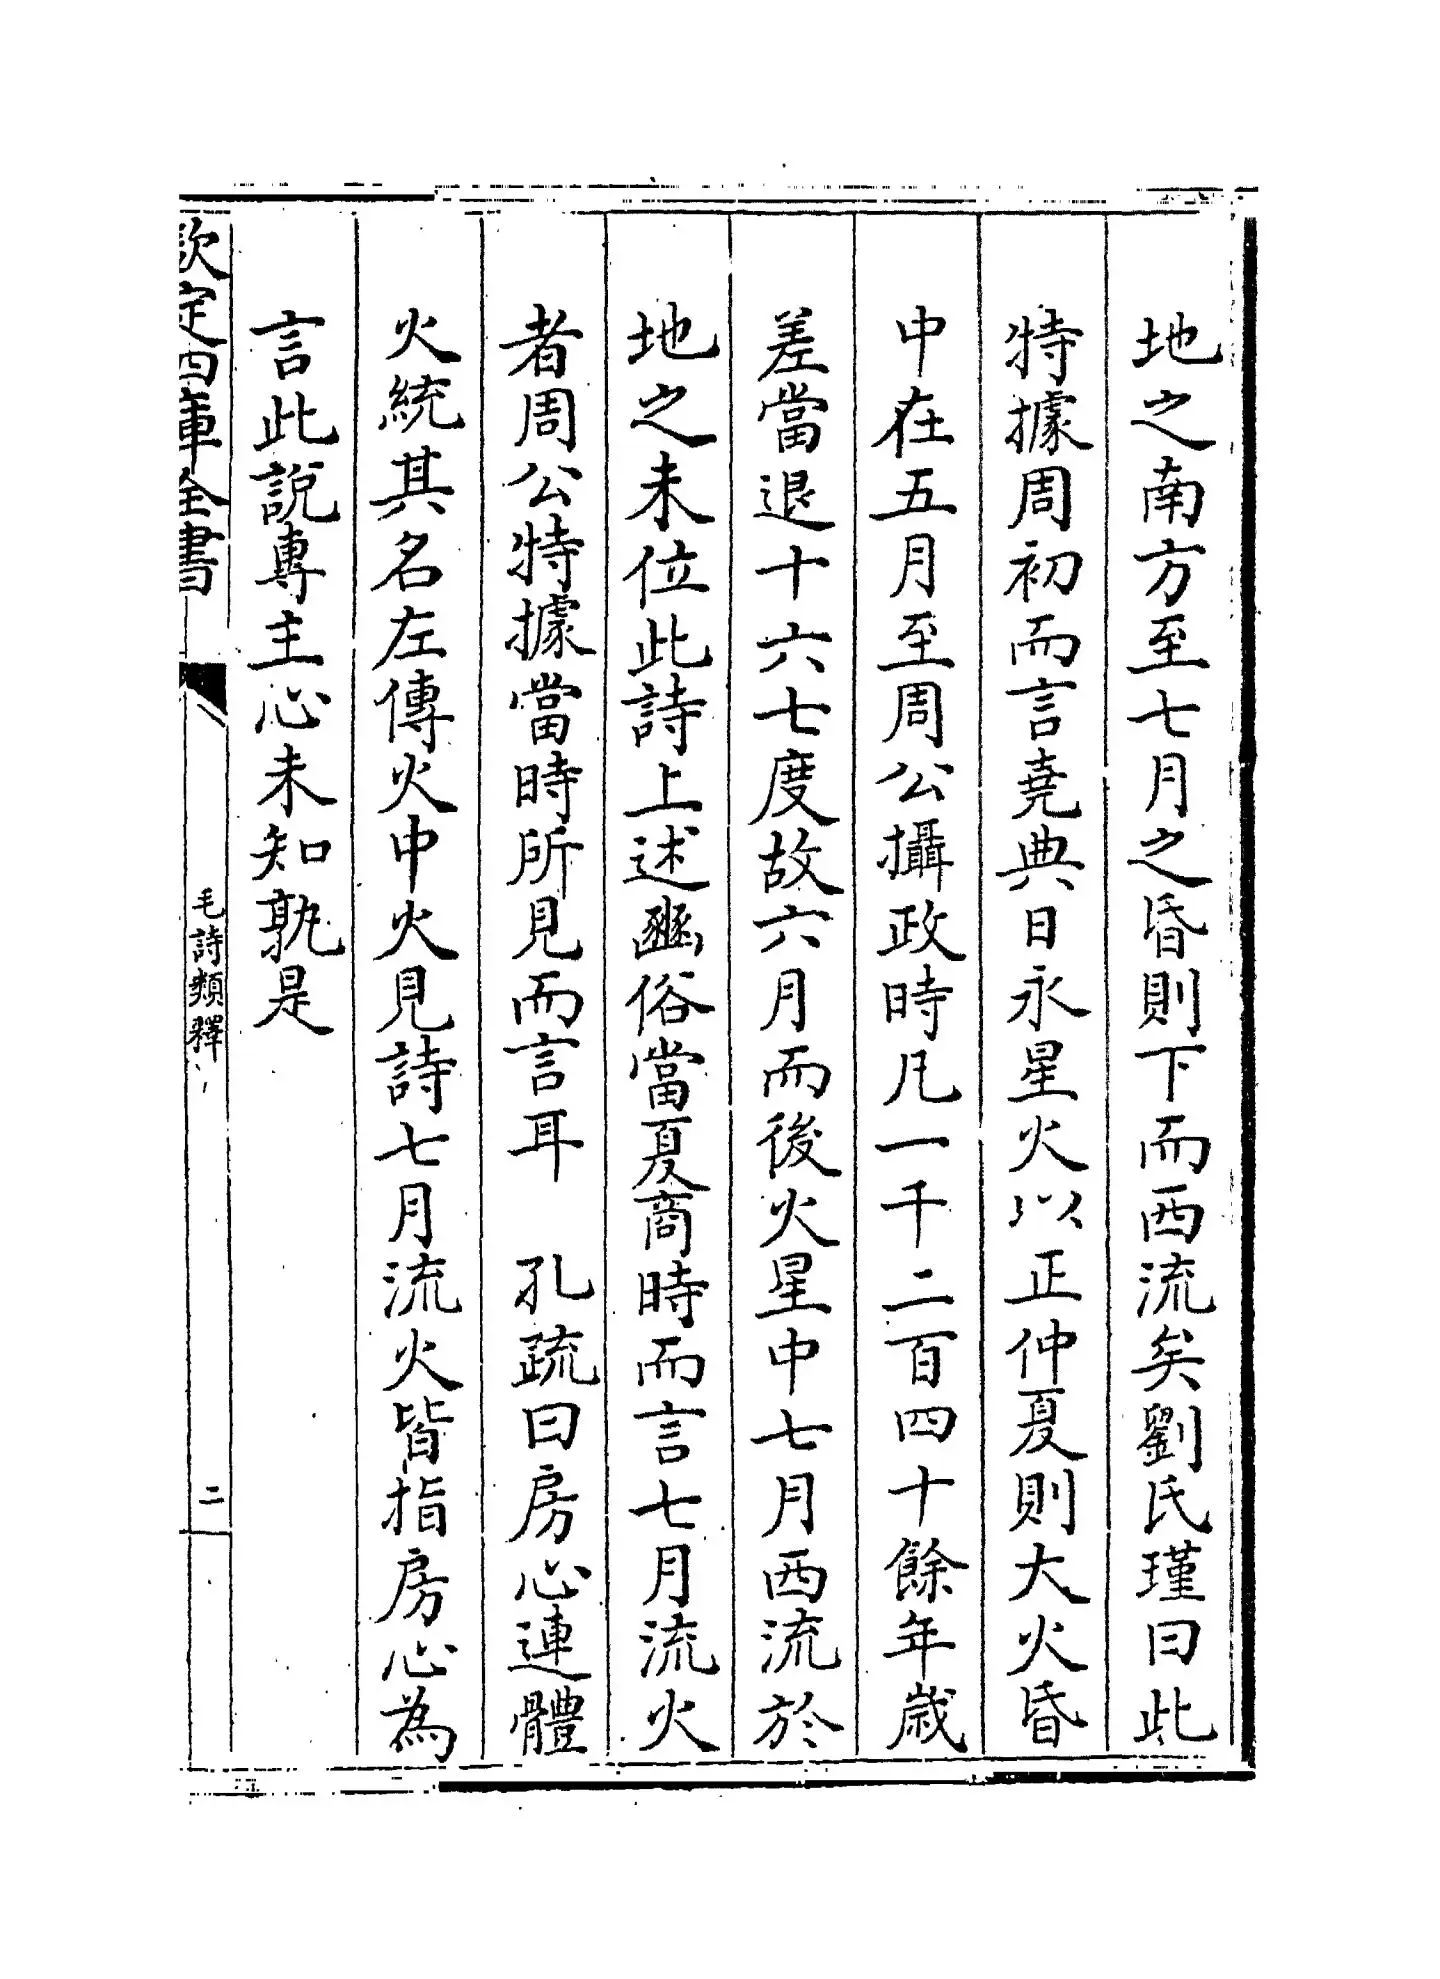 地之南方至七月之昏則下而西流矣劉氏瑾曰此
特據周初而言堯典日永星火以正仲夏則大火昏
中在五月至周公攝政時凡一千二百四十餘年歲
差當退十六七度故六月而後火星中七月西流於
地之未位此詩上述豳俗當夏商時而言七月流火
者周公特據當時所見而言耳　孔疏曰房心連體
火統其名左傳火中火見詩七月流火皆指房心為
言此說專主心未知孰是
欽定四庫全書
毛詩類釋
二